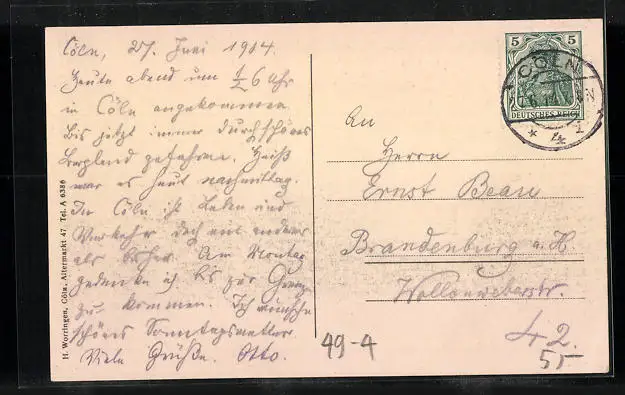 Cöln, 27. Juni 1914.
Heute abend um ½6 Uhr
in Cöln angekommen.
Bis jetzt immer durch schönes
Bergland gefahren. Heiß
war es heut nachmittag.
In Cöln ist Leben und
Verkehr doch viel anders
als bisher. Am Montag
gedenke ich bis zur Grenze
zu kommen. Ich wünsche
schönes Sonntagswetter
Viele Grüße. Otto.
H. Worringen, Cöln, Altermarkt 47 Tel. A 6386
5 5
DEUTSCHES REICH
CÖLN
* 4 *
An
Herrn
Ernst Beau
Brandenburg a. H.
Wollenweberstr.
42.
55
49-4